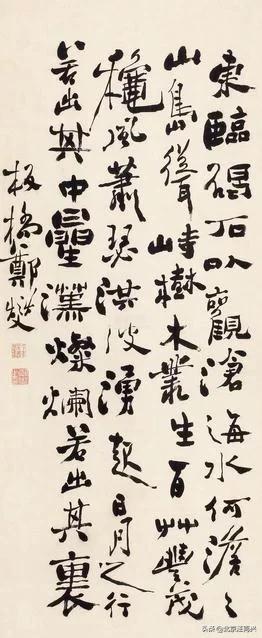 東臨碣石以觀滄海水何澹々
山島聳峙樹木叢生百艸豐茂
穐風蕭瑟洪波湧起日月之行
若出其中曐漢燦爛若出其裏
板橋鄭燮
头条